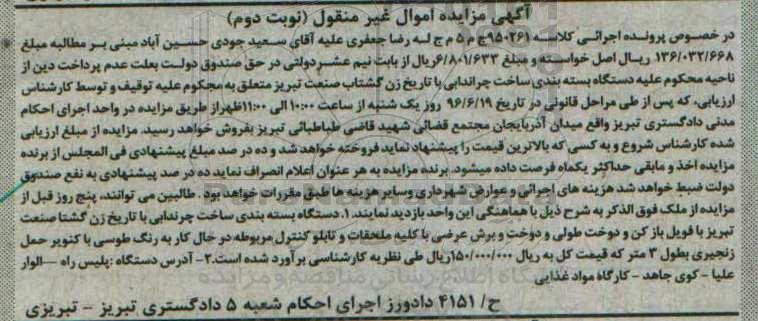 آگهی مزایده اموال غیر منقول (نوبت دوم)
در خصوص پرونده اجرائی کلاسه ۹۵۰۲۶۱ج م ۵ م ج له رضا جعفری علیه آقای سعید جودی حسین آباد مبنی بر مطالبه مبلغ
۱۳۶/۰۳۲/۶۶۸ ریال اصل خواسته و مبلغ ۶/۸۰۱/۶۳۳ریال از بابت نیم عشر دولتی در حق صندوق دولت بعلت عدم پرداخت دین از
ناحیه محکوم علیه دستگاه بسته بندی ساخت چراندابی با تاریخ زن گشتاب صنعت تبریز متعلق به محکوم علیه توقیف و توسط کارشناس
ارزیابی، که پس از طی مراحل قانونی در تاریخ ۹۶/۶/۱۹ روز یک شنبه از ساعت ۱۰:۰۰ الی ۱۱:۰۰ظهراز طریق مزایده در واحد اجرای احکام
مدنی دادگستری تبریز واقع میدان آذربایجان مجتمع قضائی شهید قاضی طباطبائی تبریز بفروش خواهد رسید. مزایده از مبلغ ارزیابی
شده کارشناس شروع و به کسی که بالاترین قیمت را پیشنهاد نماید فروخته خواهد شد و ده در صد مبلغ پیشنهادی فی المجلس از برنده
مزایده اخذ و مابقی حداکثر یکماه فرصت داده میشود. برنده مزایده به هر عنوان اعلام انصراف نماید ده در صد پیشنهادی به نفع صندوق
دولت ضبط خواهد شد هزینه های اجرائی و عوارض شهرداری وسایر هزینه ها طبق مقررات خواهد بود . طالبین می توانند، پنج روز قبل از
مزایده از ملک فوق الذکر به شرح ذیل با هماهنگی این واحد بازدید نمایند. ۱. دستگاه بسته بندی ساخت چرندابی با تاریخ زن گشتا صنعت
تبریز با فویل باز کن و دوخت طولی و دوخت و برش عرضی با کلیه ملحقات و تابلو کنترل مربوطه در حال کار به رنگ طوسی با کنویر حمل
زنجیری بطول ۳ متر که قیمت کل به ریال ۱۵۰/۰۰۰/۰۰۰ریال طی نظریه کارشناسی بر آورد شده است.۲- آدرس دستگاه :پلیس راه —الوار
علیا - کوی جاهد - کارگاه مواد غذایی
ح/ ۴۱۵۱ دادورز اجرای احکام شعبه ۵ دادگستری تبریز - تبریزی